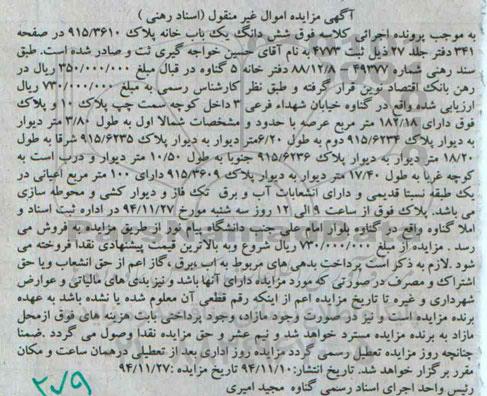 آگهی مزایده اموال غیر منقول (اسناد رهنی)
به موجب پرونده اجرائی کلاسه فوق شش دانگ یک باب خانه پلاک ۹۱۵/۳۶۱۰ در صفحه
۳۴۱ دفتر جلد ۲۷ ذیل ثبت ۴۷۷۳ به نام آقای حسین خواجه گیری ثبت و صادر شده است. طبق
سند رهنی شماره ۴۹۹۷۷- ۸۸/۱۲/۸ دفتر خانه ۵ گناوه در قبال مبلغ ۳۵۰/۰۰۰/۰۰۰ ریال در
رهن بانک اقتصاد نوین قرار گرفته و طبق نظر کارشناس رسمی به مبلغ ۷۳۰/۰۰۰/۰۰۰ ریال
ارزیابی شده واقع در گناوه خیابان شهداء فرعی ۳ داخل کوچه سمت چپ پلاک ۱۰ و پلاک
فوق دارای ۱۸۲/۱۸ متر مربع عرصه با حدود و مشخصات شمالا اول به طول ۳/۸۰ متر دیوار
به دیوار پلاک ۹۱۵/۶۲۳۴ دوم به طول ۶/۲۰متر دیوار به دیوار پلاک ۹۱۵/۶۲۳۵ شرقا به طول
۱۸/۲۰ متر دیوار به دیوار پلاک ۹۱۵/۶۲۳۶ جنوبا به طول ۱۰/۵۰ متر دیوار و درب است به
کوچه غربا به طول ۱۷/۴۰ متر دیوار به دیوار پلاک ۹۱۵/۳۶۰۹ دارای ۱۰۰ متر مربع اعیانی در
یک طبقه نسبتا قدیمی و دارای انشعابات آب و برق تک فاز و دیوار کشی و محوطه سازی
می باشد. پلاک فوق از ساعت ۹ الی ۱۲ روز سه شنبه مورخ ۹۴/۱۱/۲۷ در اداره ثبت اسناد و
املا گناوه واقع در گناوه بلوار امام علی جنب دانشگاه پیام نور از طریق مزایده به فروش می
رسد . مزایده از مبلغ ۷۳۰/۰۰۰/۰۰۰ ریال شروع وبه بالاترین قیمت پیشنهادی نقدا فروخته می
شود .لازم به ذکر است پرداخت بدهی های مربوط به آب ،برق ،گاز اعم از حق انشعاب ویا حق
اشتراک و مصرف در صورتی که مورد مزایده دارای آنها باشد و نیز بدی های مالیاتی و عوارض
شهرداری و غیره تا تاریخ مزایده اعم از اینکه رقم قطعی آن معلوم شده یا نشده باشد به عهده
برنده مزایده است و نیز در صورت وجود مازاد، وجود پرداختی بابت هزینه های فوق ازمحل
مازاد به برنده مزایده مسترد خواهد شد و نیم عشر و حق مزایده نقدا وصول می گردد .ضمنا
چنانچه روز مزایده تعطیل رسمی گردد مزایده روز اداری بعد از تعطیلی درهمان ساعت و مکان
مقرر برگزار خواهد شد. تاریخ انتشار:۹۴/۱۱/۱۰ تاریخ مزایده :۹۴/۱۱/۲۷
رئیس واحد اجرای اسناد رسمی گناوه مجید امیری
۲۷۹